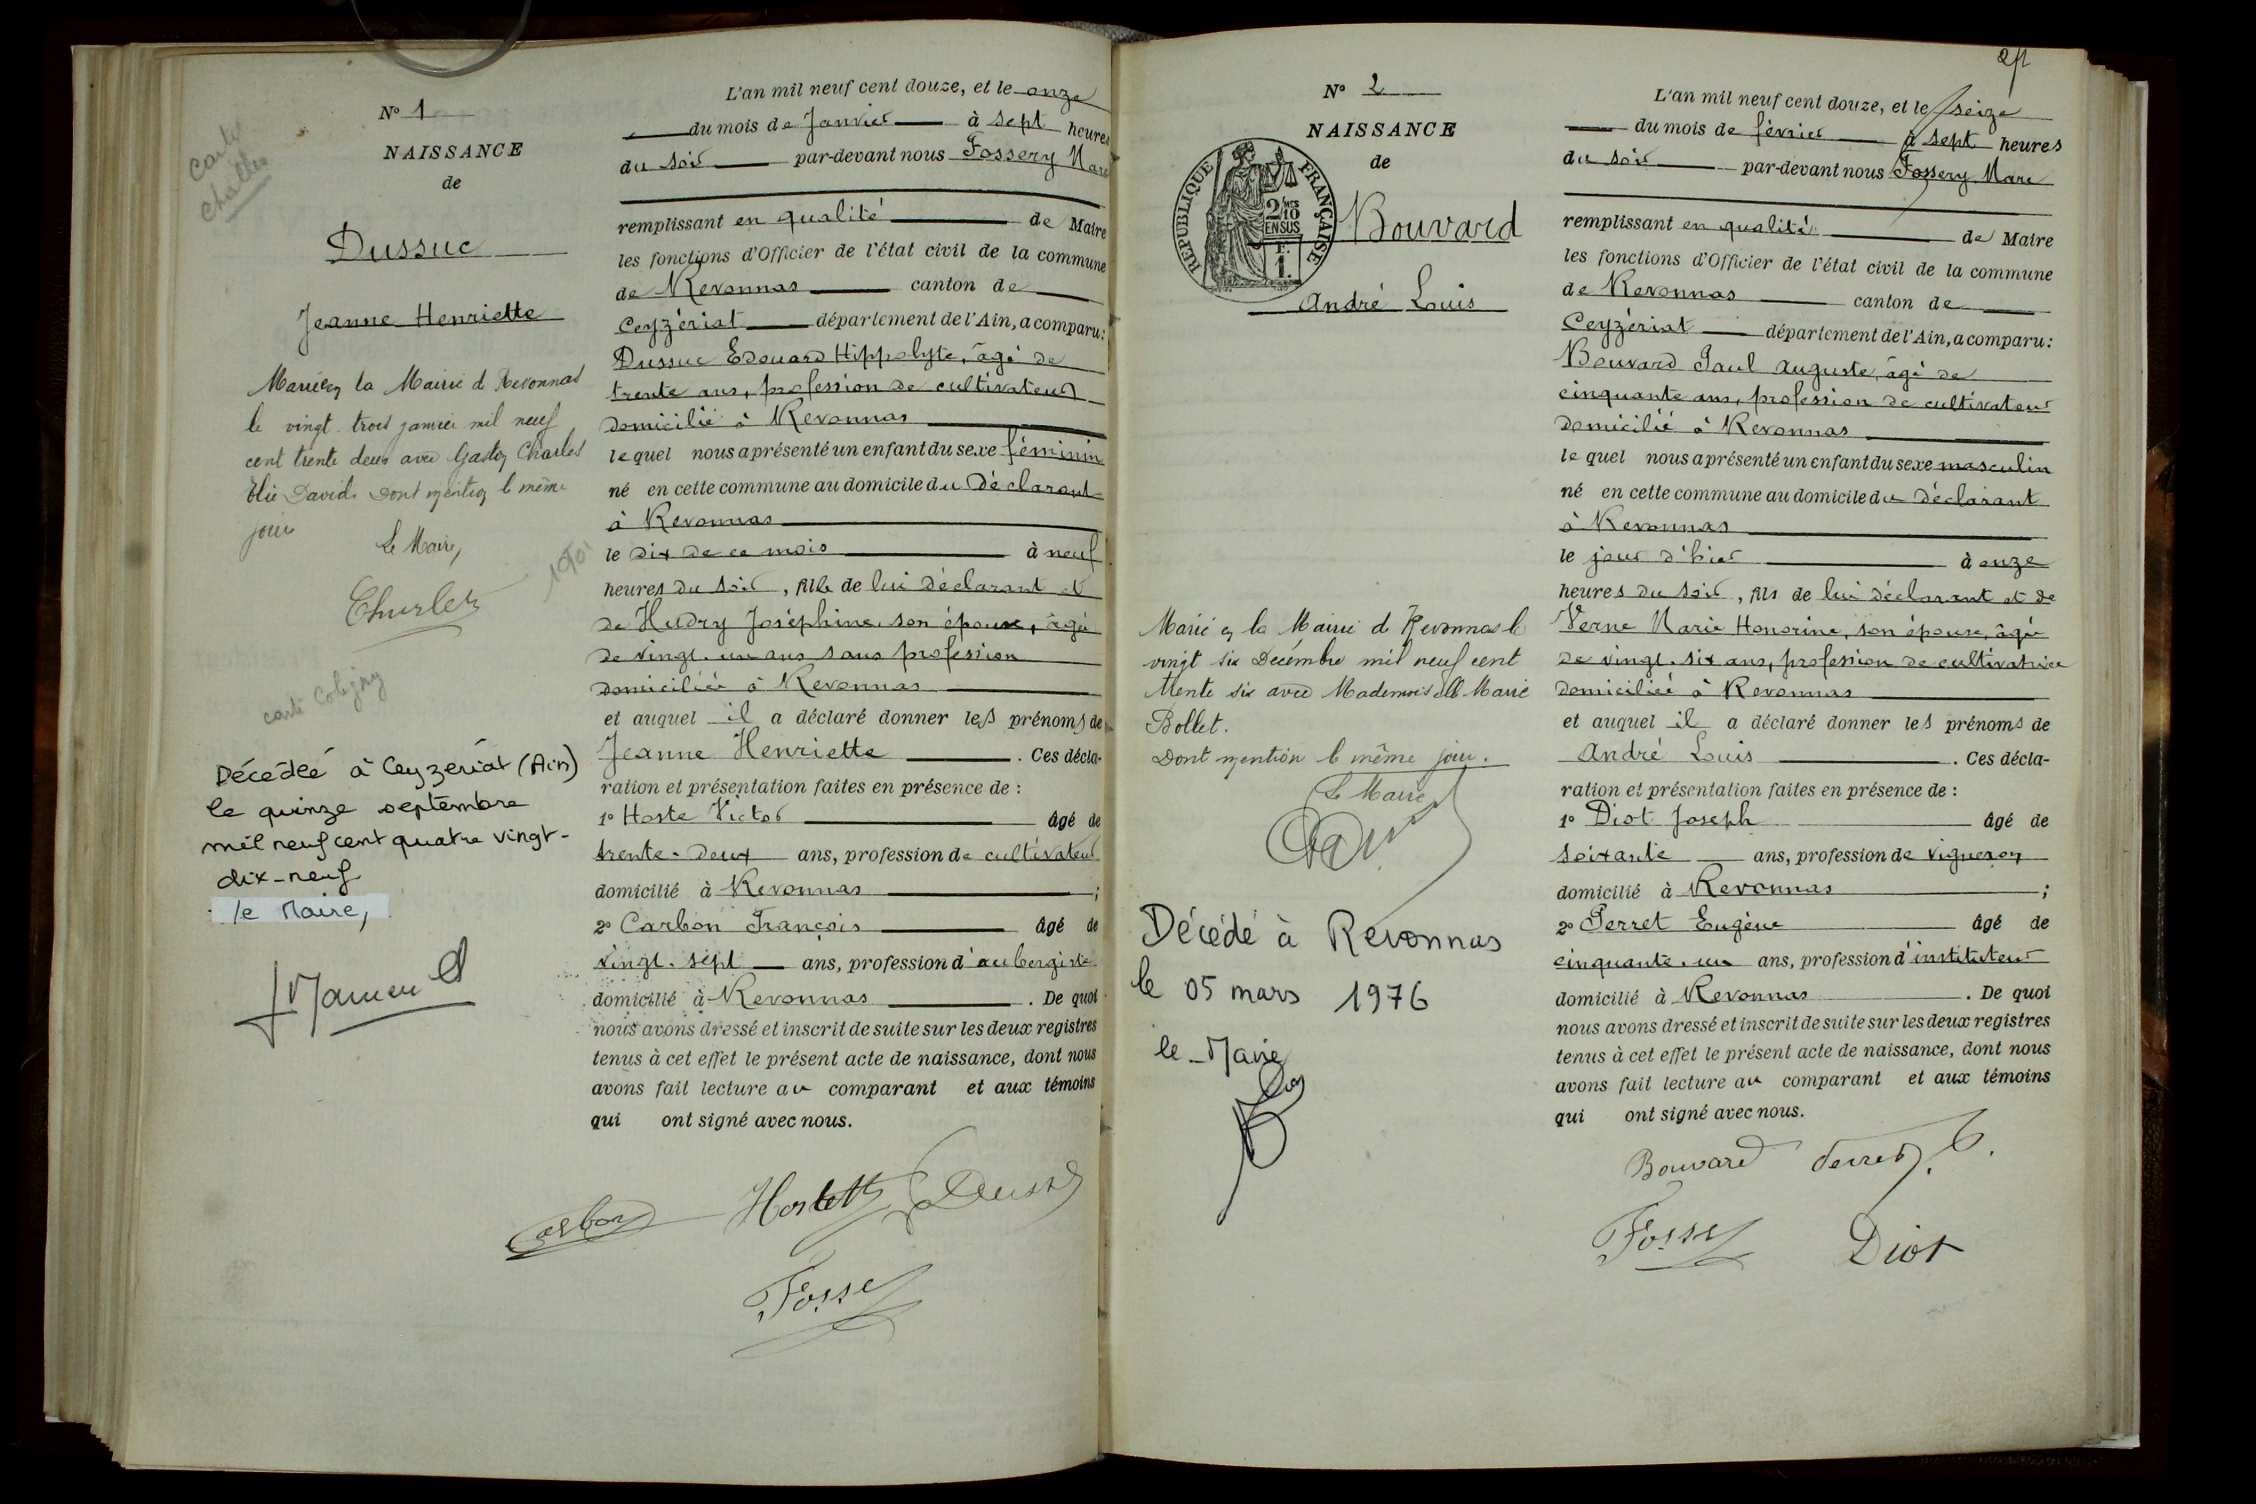 Nº 1
NAISSANCE
de
Dussuc
Jeanne Henriette
Carte
Marié en la Mairie de Revonnas
le vingt trois janvier mil neuf
cent trente deux avec Gaston Charles
Elie David. Dont mention le même
jour
Le Maire,
carte Coligny
Décédée à Ceyzériat (Ain)
le quinze septembre
mil neuf cent quatre vingt-
dix-neuf
le Maire,
L'an mil neuf cent douze, et le onze
du mois de Janvier à sept heures
du soir par-devant nous Fossery Marc
remplissant en qualité de Maire
les fonctions d'Officier de l'état civil de la commune
de Revonnas canton de
Ceyzériat département de l'Ain, a comparu:
Dussuc Edouard Hippolyte, âgé de
trente ans, profession de cultivateur
domicilié à Revonnas
lequel nous a présenté un enfant du sexe féminin
né en cette commune au domicile du déclarant
à Revonnas
le dix de ce mois à neuf
heures du soir, fille de lui déclarant et
de Hudry Joséphine, son épouse, âgée
de vingt-un ans sans profession
domiciliée à Revonnas
et auquel il a déclaré donner les prénoms de
Jeanne Henriette. Ces décla-
ration et présentation faites en présence de :
1º Hoste Victor âgé de
trente-deux ans, profession de cultivateur
domicilié à Revonnas ;
2º Carbon François âgé de
vingt-sept ans, profession d'aubergiste
domicilié à Revonnas. De quoi
nous avons dressé et inscrit de suite sur les deux registres
tenus à cet effet le présent acte de naissance, dont nous
avons fait lecture au comparant et aux témoins
qui ont signé avec nous.
Carbon
Dussuc
Fossery
Nº 2
NAISSANCE
de
REPUBLIQUE FRANÇAISE
2/10
EN SUS
1
Bouvard
André Louis
Marié en la Mairie de Revonnas le
vingt six Décembre mil neuf cent
trente six avec Mademoiselle Marie
Bollet.
Dont mention le même jour.
Le Maire
Décédé à Revonnas
le 05 mars 1976
le Maire
L'an mil neuf cent douze, et le seize
du mois de février à sept heures
du soir par-devant nous Fossery Marc
remplissant en qualité de Maire
les fonctions d'Officier de l'état civil de la commune
de Revonnas canton de
Ceyzériat département de l'Ain, a comparu:
Bouvard Paul Auguste, âgé de
cinquante ans, profession de cultivateur
domicilié à Revonnas
lequel nous a présenté un enfant du sexe masculin
né en cette commune au domicile du déclarant
à Revonnas
le jour d'hier à onze
heures du soir, fils de lui déclarant et de
Verne Marie Honorine, son épouse, âgée
de vingt-six ans, profession de cultivatrice
domiciliée à Revonnas
et auquel il a déclaré donner les prénoms de
André Louis. Ces décla-
ration et présentation faites en présence de :
1º Diot Joseph âgé de
soixante ans, profession de vigneron
domicilié à Revonnas ;
2º Perret Eugène âgé de
cinquante-un ans, profession d'instituteur
domicilié à Revonnas. De quoi
nous avons dressé et inscrit de suite sur les deux registres
tenus à cet effet le présent acte de naissance, dont nous
avons fait lecture au comparant et aux témoins
qui ont signé avec nous.
Bouvard Perret E.
Fossery Diot